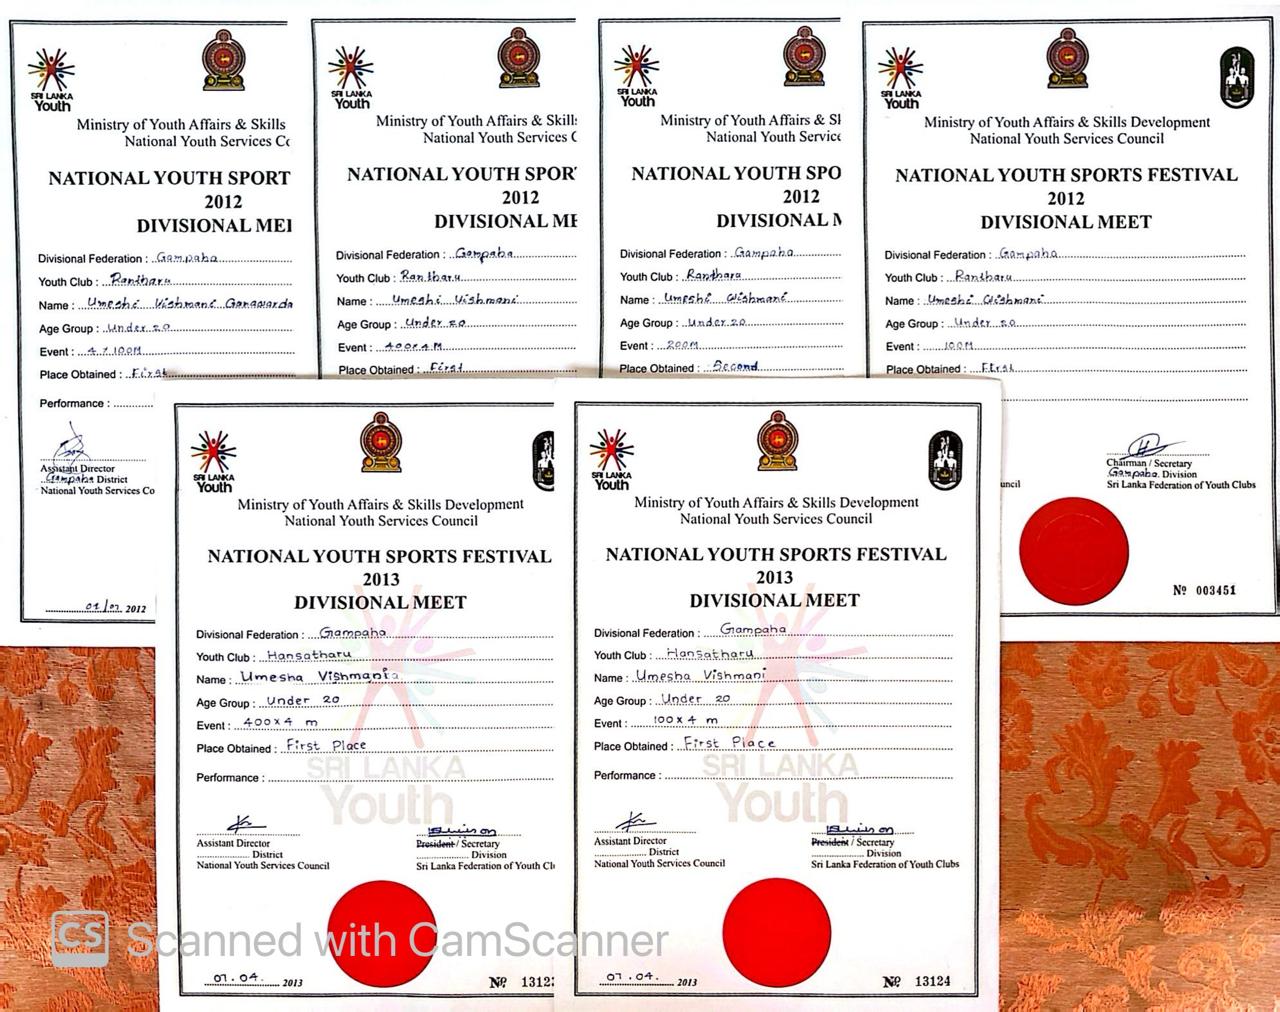 SRI LANKA
Youth
Ministry of Youth Affairs & Skills
National Youth Services Co
NATIONAL YOUTH SPORT
2012
DIVISIONAL MEE
Divisional Federation : Gampaha
Youth Club : Rantharu
Name : Umeshi Vishmani Ganawarda
Age Group : Under 20
Event : 4 x 100M
Place Obtained : First
Performance :
Assistant Director
Gampaha District
National Youth Services Co
01/07 2012
SRI LANKA
Youth
Ministry of Youth Affairs & Skills
National Youth Services C
NATIONAL YOUTH SPOR
2012
DIVISIONAL ME
Divisional Federation : Gampaha
Youth Club : Rantharu
Name : Umeshi Vishmani
Age Group : Under 20
Event : 400x4M
Place Obtained : First
SRI LANKA
Youth
Ministry of Youth Affairs & Sk
National Youth Service
NATIONAL YOUTH SPO
2012
DIVISIONAL M
Divisional Federation : Gampaha
Youth Club : Rantharu
Name : Umeshi Wishmani
Age Group : Under 20
Event : 200M
Place Obtained : Second
SRI LANKA
Youth
Ministry of Youth Affairs & Skills Development
National Youth Services Council
NATIONAL YOUTH SPORTS FESTIVAL
2012
DIVISIONAL MEET
Divisional Federation : Gampaha
Youth Club : Rantharu
Name : Umeshi Wishmani
Age Group : Under 20
Event : 100M
Place Obtained : First
Chairman / Secretary
Gampaha Division
uncil
Sri Lanka Federation of Youth Clubs
No 003451
SRI LANKA
Youth
Ministry of Youth Affairs & Skills Development
National Youth Services Council
NATIONAL YOUTH SPORTS FESTIVAL
2013
DIVISIONAL MEET
Divisional Federation : Gampaha
Youth Club : Hansatharu
Name : Umesha Vishmania
Age Group : Under 20
Event : 400x4 m
Place Obtained : First Place
SRI LANKA
Youth
Performance :
Assistant Director
District
National Youth Services Council
President / Secretary
Division
Sri Lanka Federation of Youth Cl
07.04. 2013
No 1312
SRI LANKA
Youth
Ministry of Youth Affairs & Skills Development
National Youth Services Council
NATIONAL YOUTH SPORTS FESTIVAL
2013
DIVISIONAL MEET
Divisional Federation : Gampaha
Youth Club : Hansatharu
Name : Umesha Vishmani
Age Group : Under 20
Event : 100x4 m
Place Obtained : First Place
SRI LANKA
Youth
Performance :
Assistant Director
District
National Youth Services Council
President / Secretary
Division
Sri Lanka Federation of Youth Clubs
07.04. 2013
No 13124
CS Scanned with CamScanner